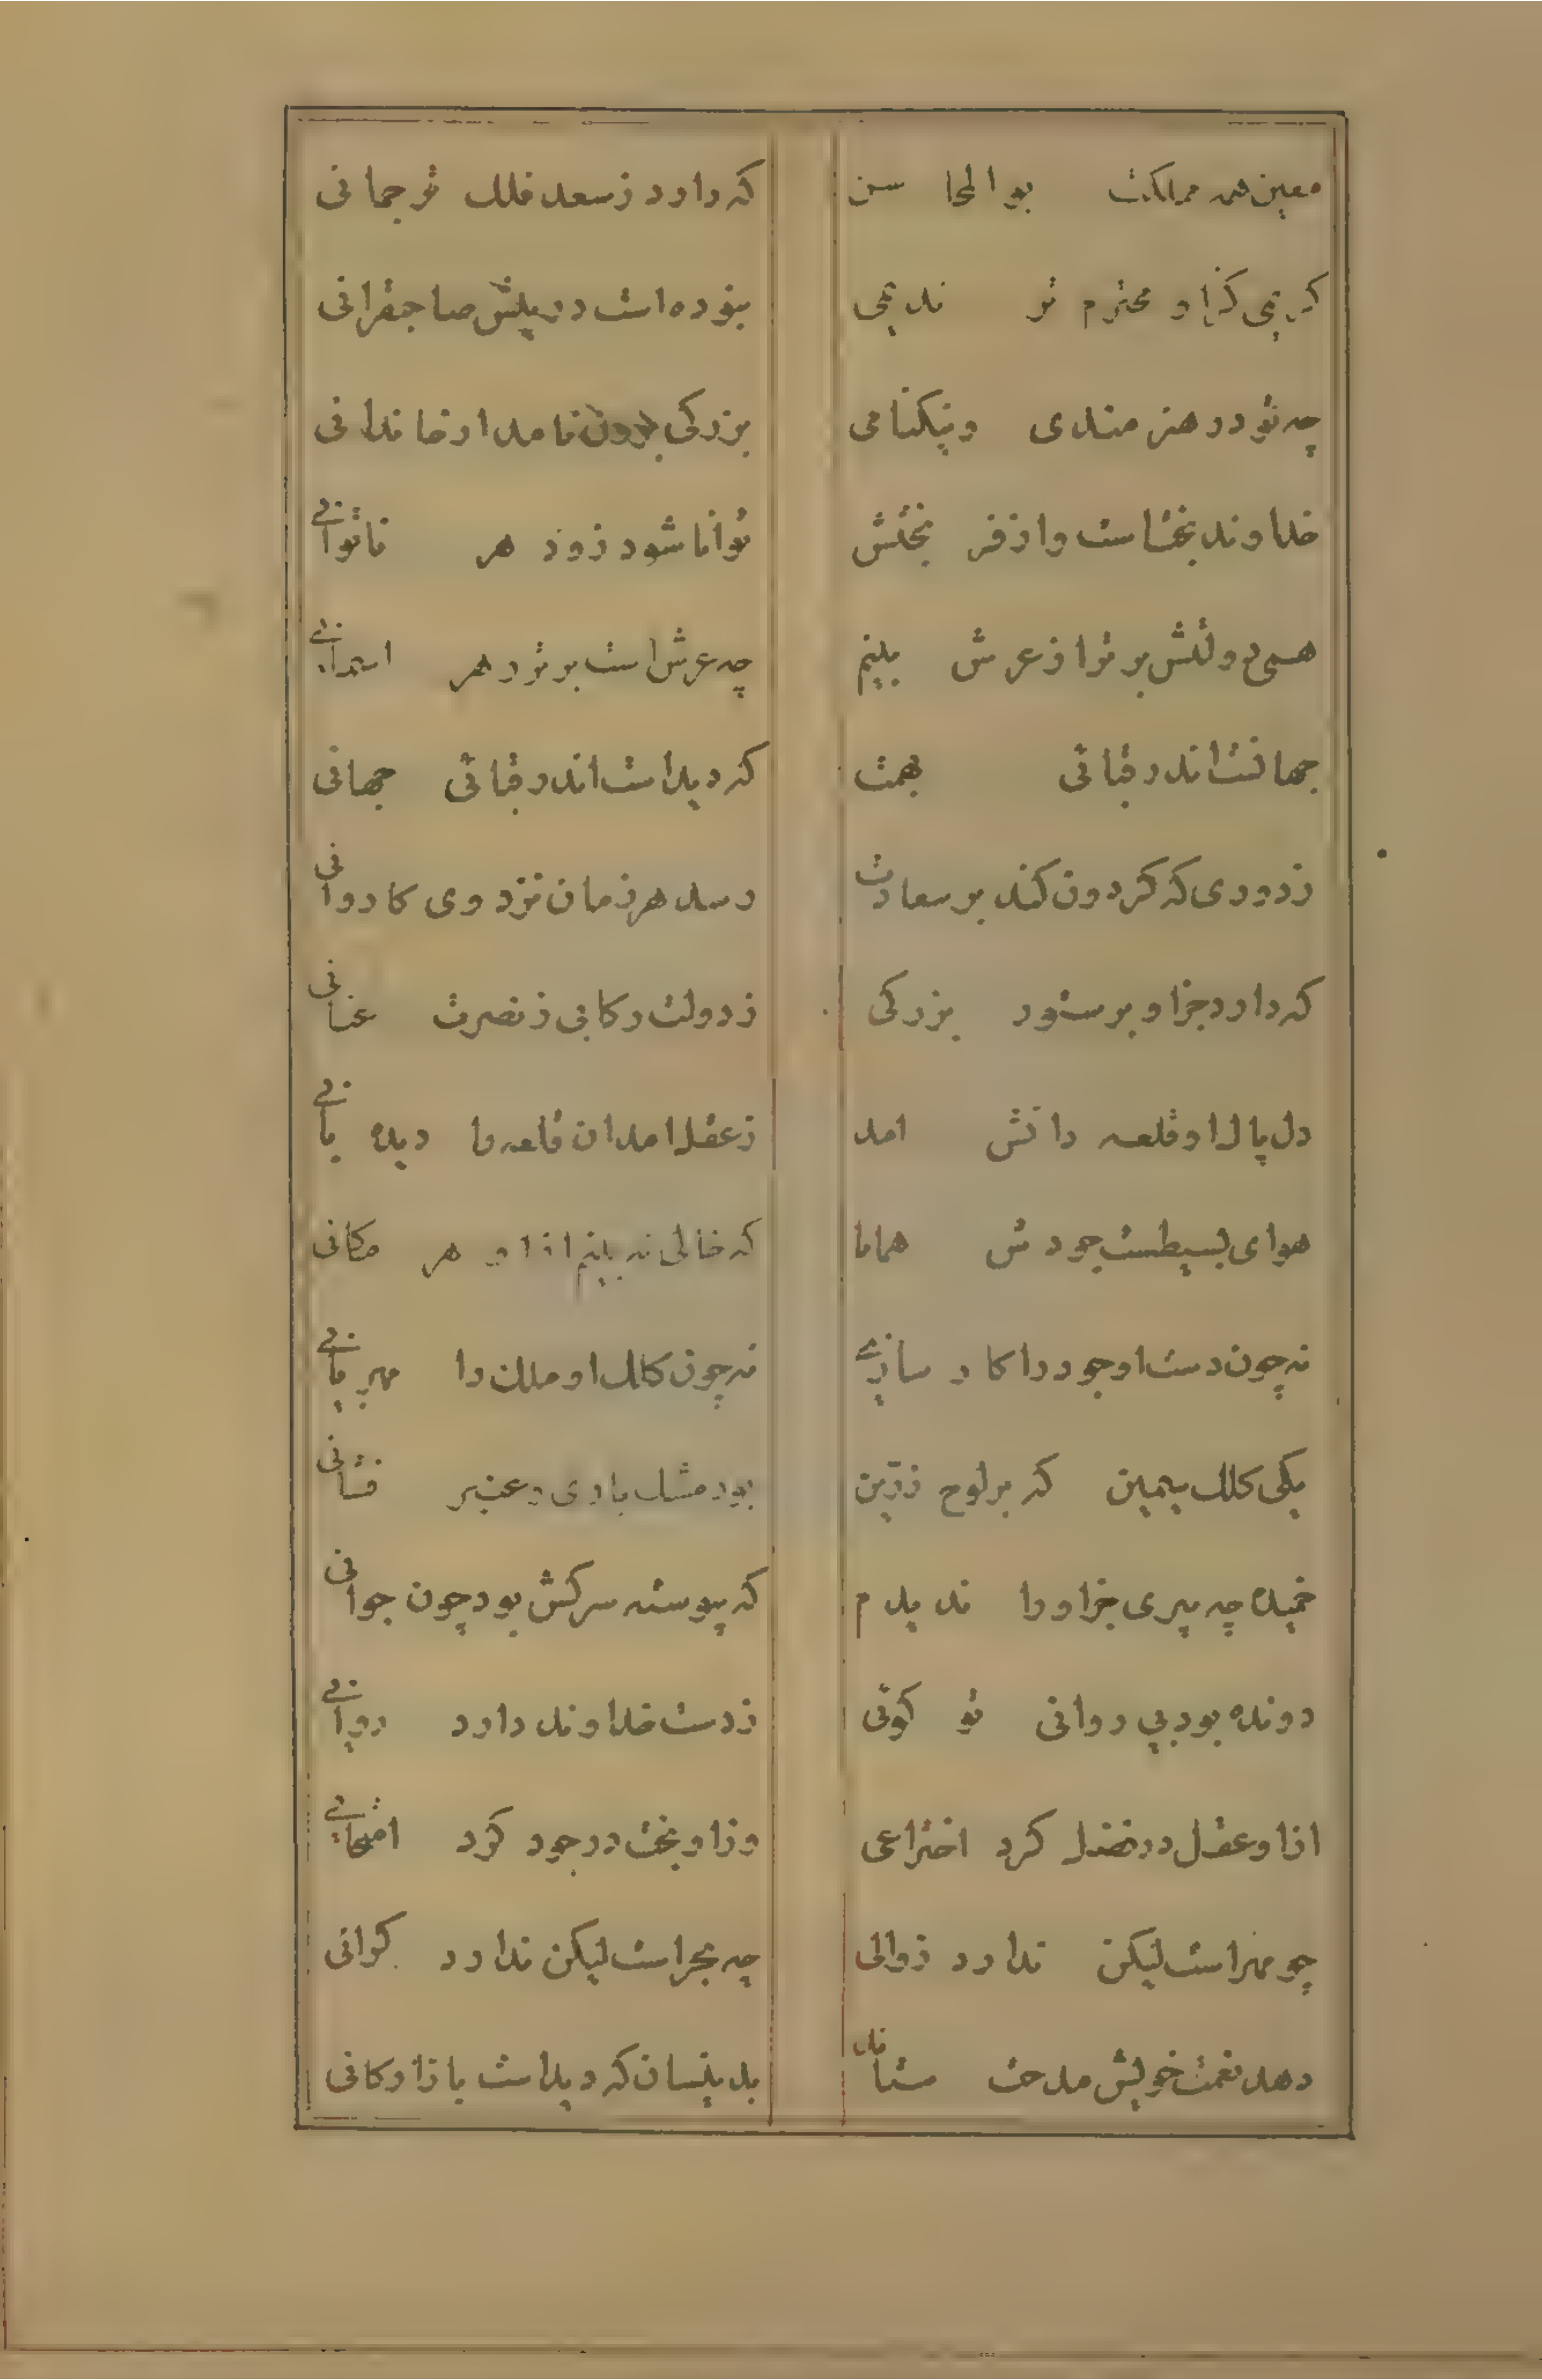 معین همه مملکت بوالمحاسن که دارد ز سعد فلک ترجمانی
کریمی کزا و محترم تر ندیمی نبوده است در پیش صاحبقرانی
چه تو در هنرمندی و نیکنامی بزرگی برون نامد از خاندانی
خداوند بختاست و از فر بختش توانا شود زود هر ناتوانی
همی دولتش برتر از عرش بینم چه عرش است برتر ز هر آسمانی
جهانست اندر قبائی بهمت که دیداست اندر قبائی جهانی
ز دوری که گردون کند بر سعادت رسد هر زمان نزد وی کاروانی
که دارد جز او بر ستور بزرگی ز دولت رکابی ز نصرت عنانی
دل پاک او قلعه دانش امد ز عقل امد ان قلعه را دیده بانی
هوای بسیطست جودش همانا که خالی نه بینم ازا و هر مکانی
نه چون دست او جود را کار سازی نه چون کلک او ملک را مهربانی
یکی کلک سیمین که بر لوح زرّین بود مشک باری و عنبر فشانی
خمیده چه پیری جز او را ندیدم که پیوسته سرکش بود چون جوانی
دونده بود بی روانی تو گوئی ز دست خداوند دارد روانی
ازا و عقل در فضل کرد اختراعی وزا و بخت در جود کرد امتحانی
چو مهر است لیکن ندارد زوالی چه بحر است لیکن ندارد کرانی
دهد نعمت خویش مدحت ستاند بدینسان که دیداست بازارکانی